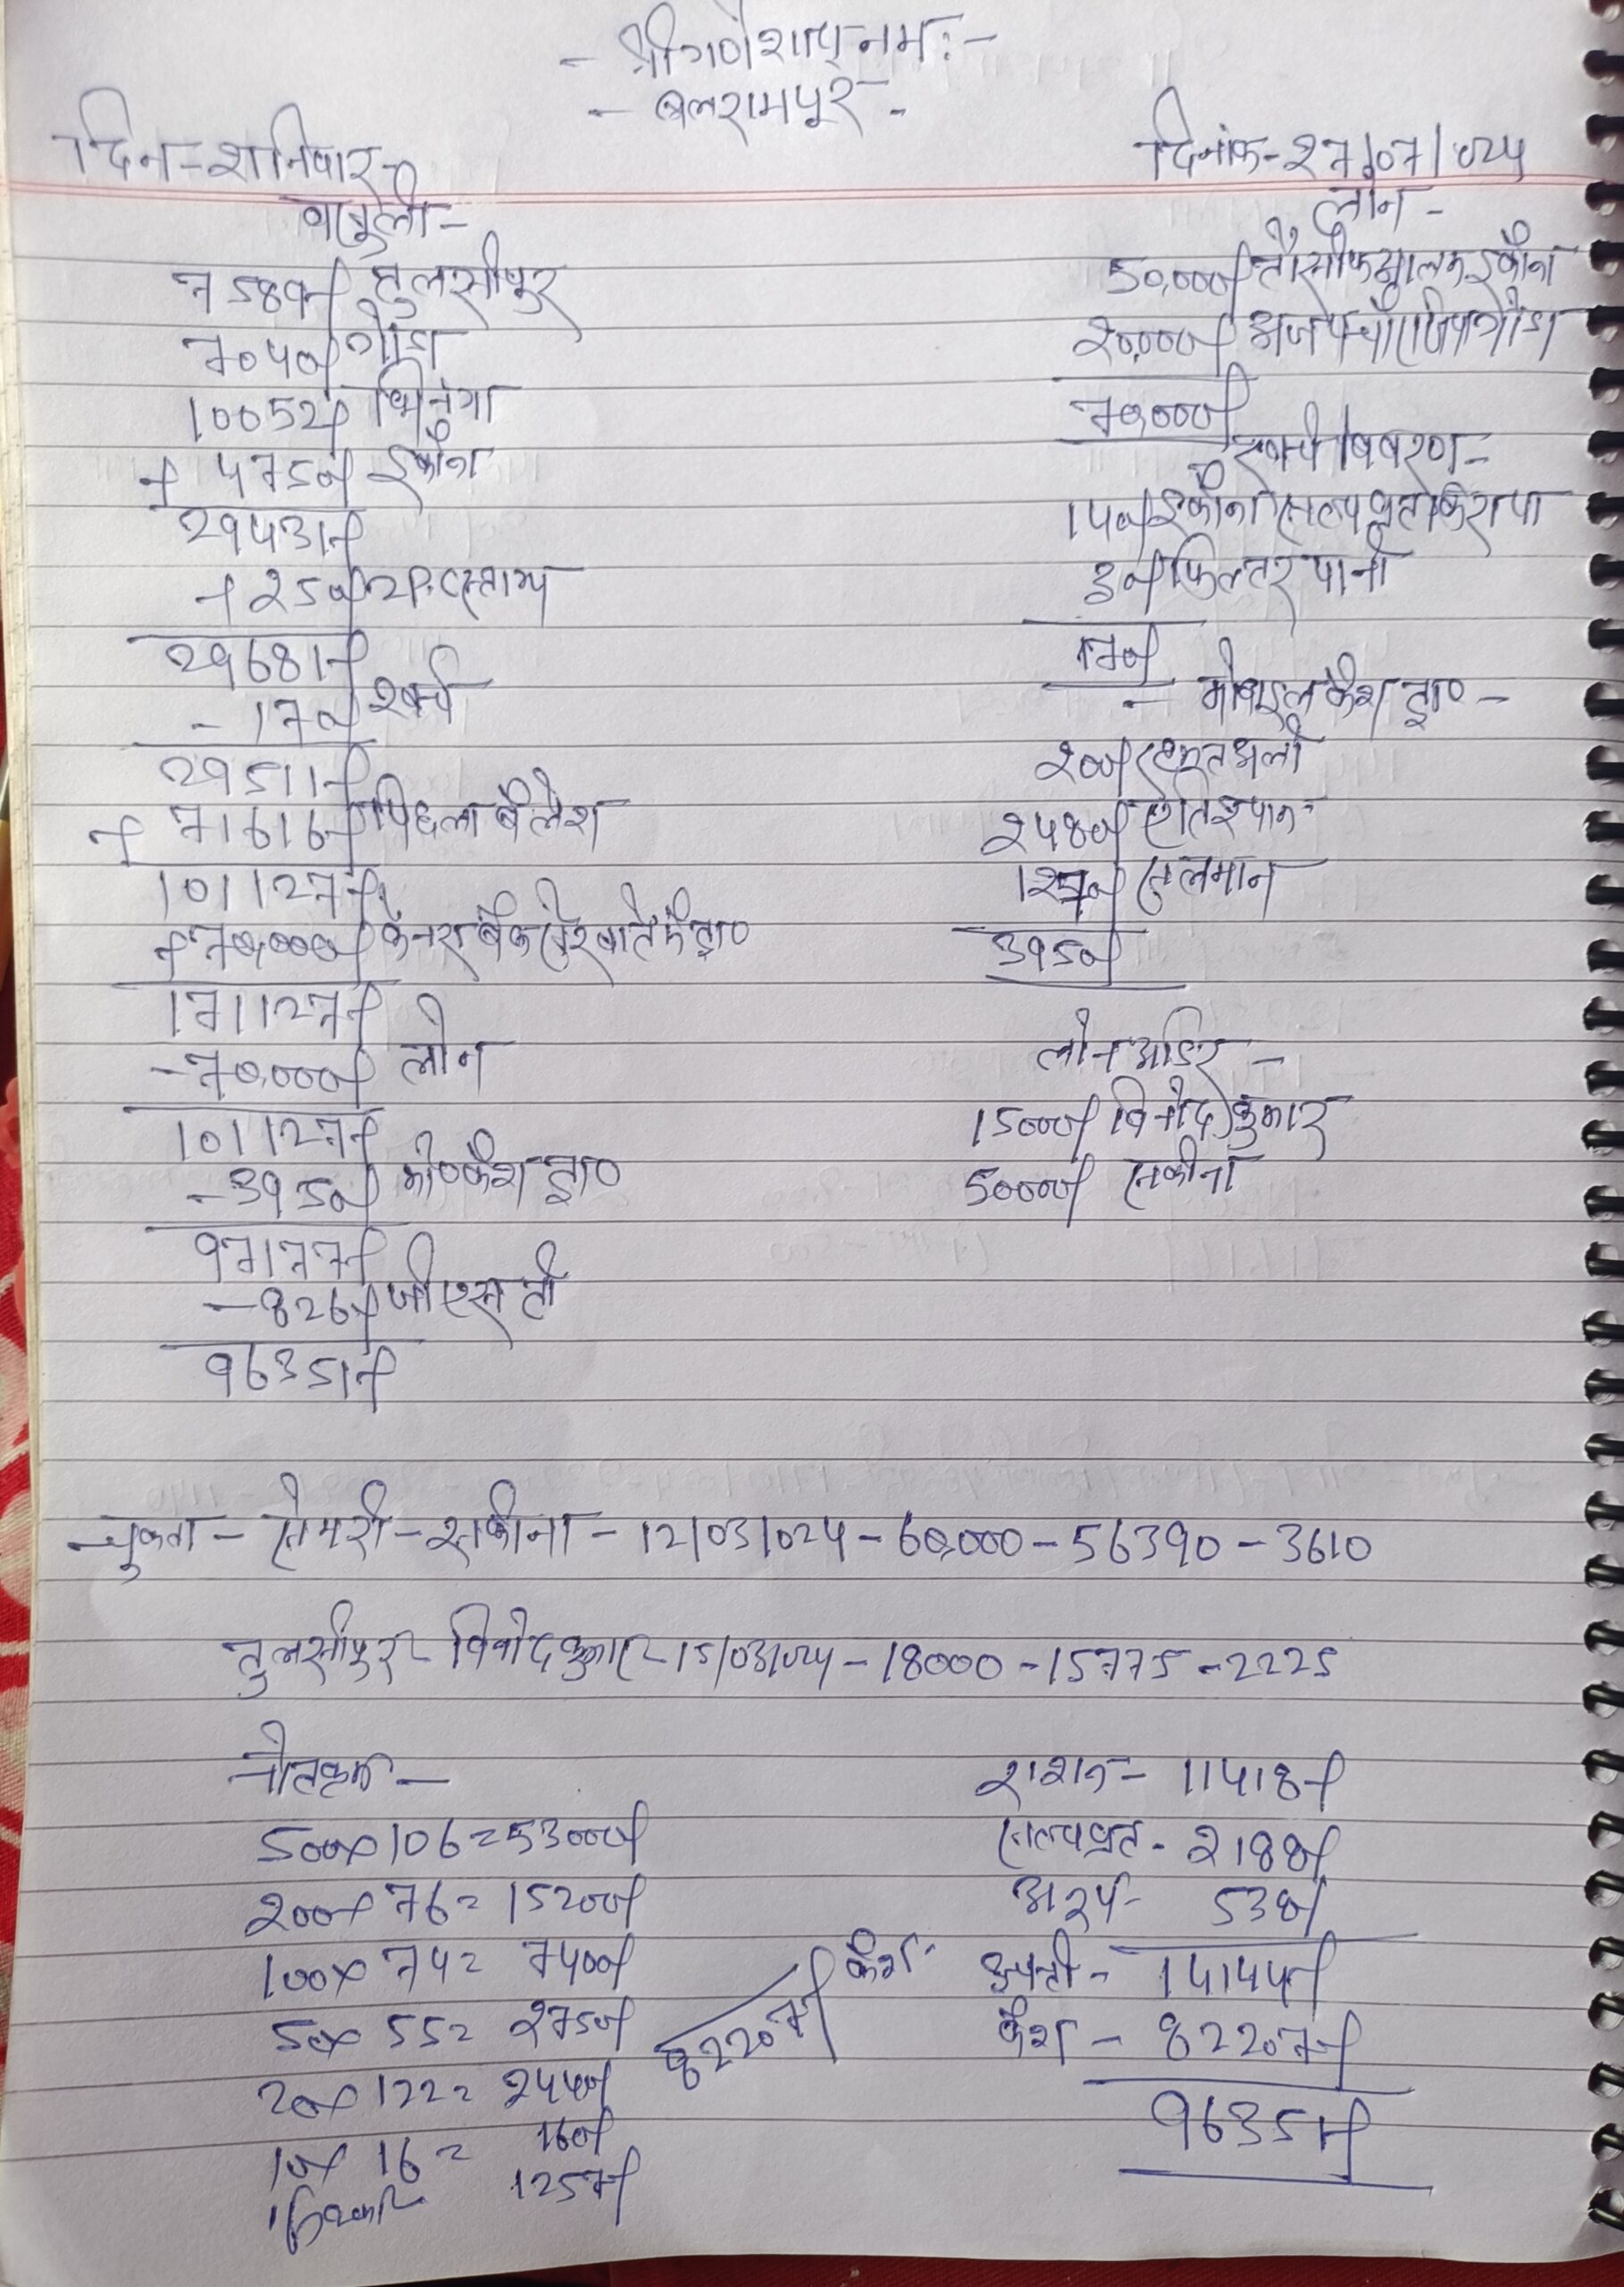 - श्री गणेशाय नमः -
- बलरामपुर -
दिन - शनिवार
दिनांक - 27/07/024
वसूली -
7589/ तुलसीपुर
7040/ गोंडा
10052/ भिनगा
+ 4750/ इकौना
29431/
+ 250/ स्टाम्प
29681/
- 170/ खर्च
29511/
+ 71616/ पिछला बैलेंश
101127/
+ 70,000/ केनरा बैंक
171127/
- 70,000/ लोन
101127/
- 3950/ मो० कैश ट्रा०
97177/
- 826/ जी एस टी
96351/
लोन -
50,000/ इकौना
20,000/ गोंडा
70,000/
खर्च विवरण -
140/ इकौना सत्यव्रत किराया
30/ फिल्टर पानी
170/
- मोबाइल कैश ट्रा० -
200/ रहमत अली
2480/
1270/ सलमान
3950/
लोन आर्डर -
15000/ विनोद कुमार
50000/ सकीना
चुकता - सेमरी - सकीना - 12/03/024 - 60,000 - 56390 - 3610
तुलसीपुर - विनोद कुमार - 15/03/024 - 18000 - 15775 - 2225
500x 106 = 53000/
200x 76 = 15200/
100x 74 = 7400/
50x 55 = 2750/
20x 122 = 2440/
10x 16 = 160/
1257/
82207/ कैश -
राशन - 11418/
सत्यव्रत - 2188/
538/
14144/
कैश - 82207/
96351/